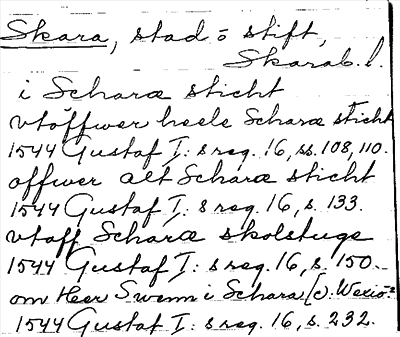 Skara, stad o stift,
Skarab. l.
i Scharæ sticht
vtöffwer heele Scharæ sticht
1544 Gustaf I:s reg. 16, ss. 108, 110.
offwer alt Scharæ sticht
1544 Gustaf I:s reg. 16, s. 133.
vtaff Scharæ skolstuge
1544 Gustaf I:s reg. 16, s. 150.
om Herr Swenn i Schara
1544 Gustaf I:s reg. 16, s. 232.